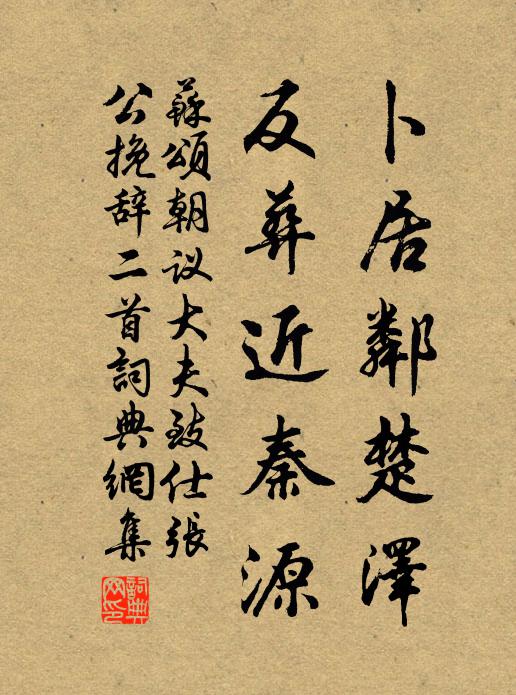 卜居鄰楚澤
反葬近秦源
蘇頌朝议大夫致仕張
公挽辞二首詞典網集
詞典网印